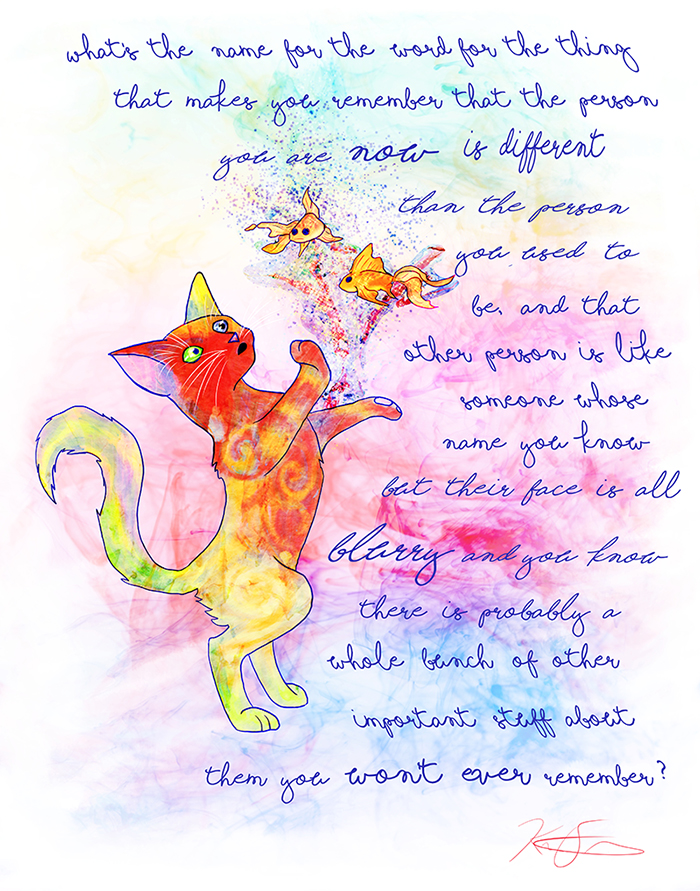 what's the name for the word for the thing
that makes you remember that the person
you are now is different
than the person
you used to
be, and that
other person is like
someone whose
name you know
but their face is all
blurry and you know
there is probably a
whole bunch of other
important stuff about
them you won't ever remember?